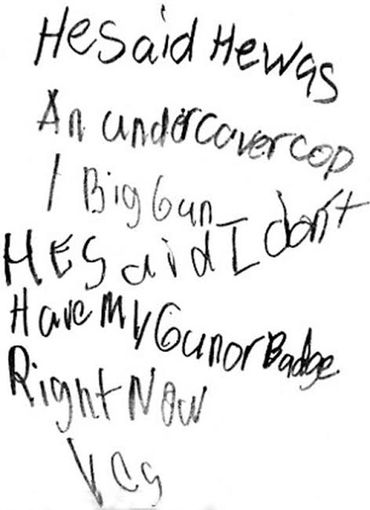 He Said He was
An undercover cop
1 Big Gun
HE Said I don't
Have My Gun or Badge
Right Now
Yes